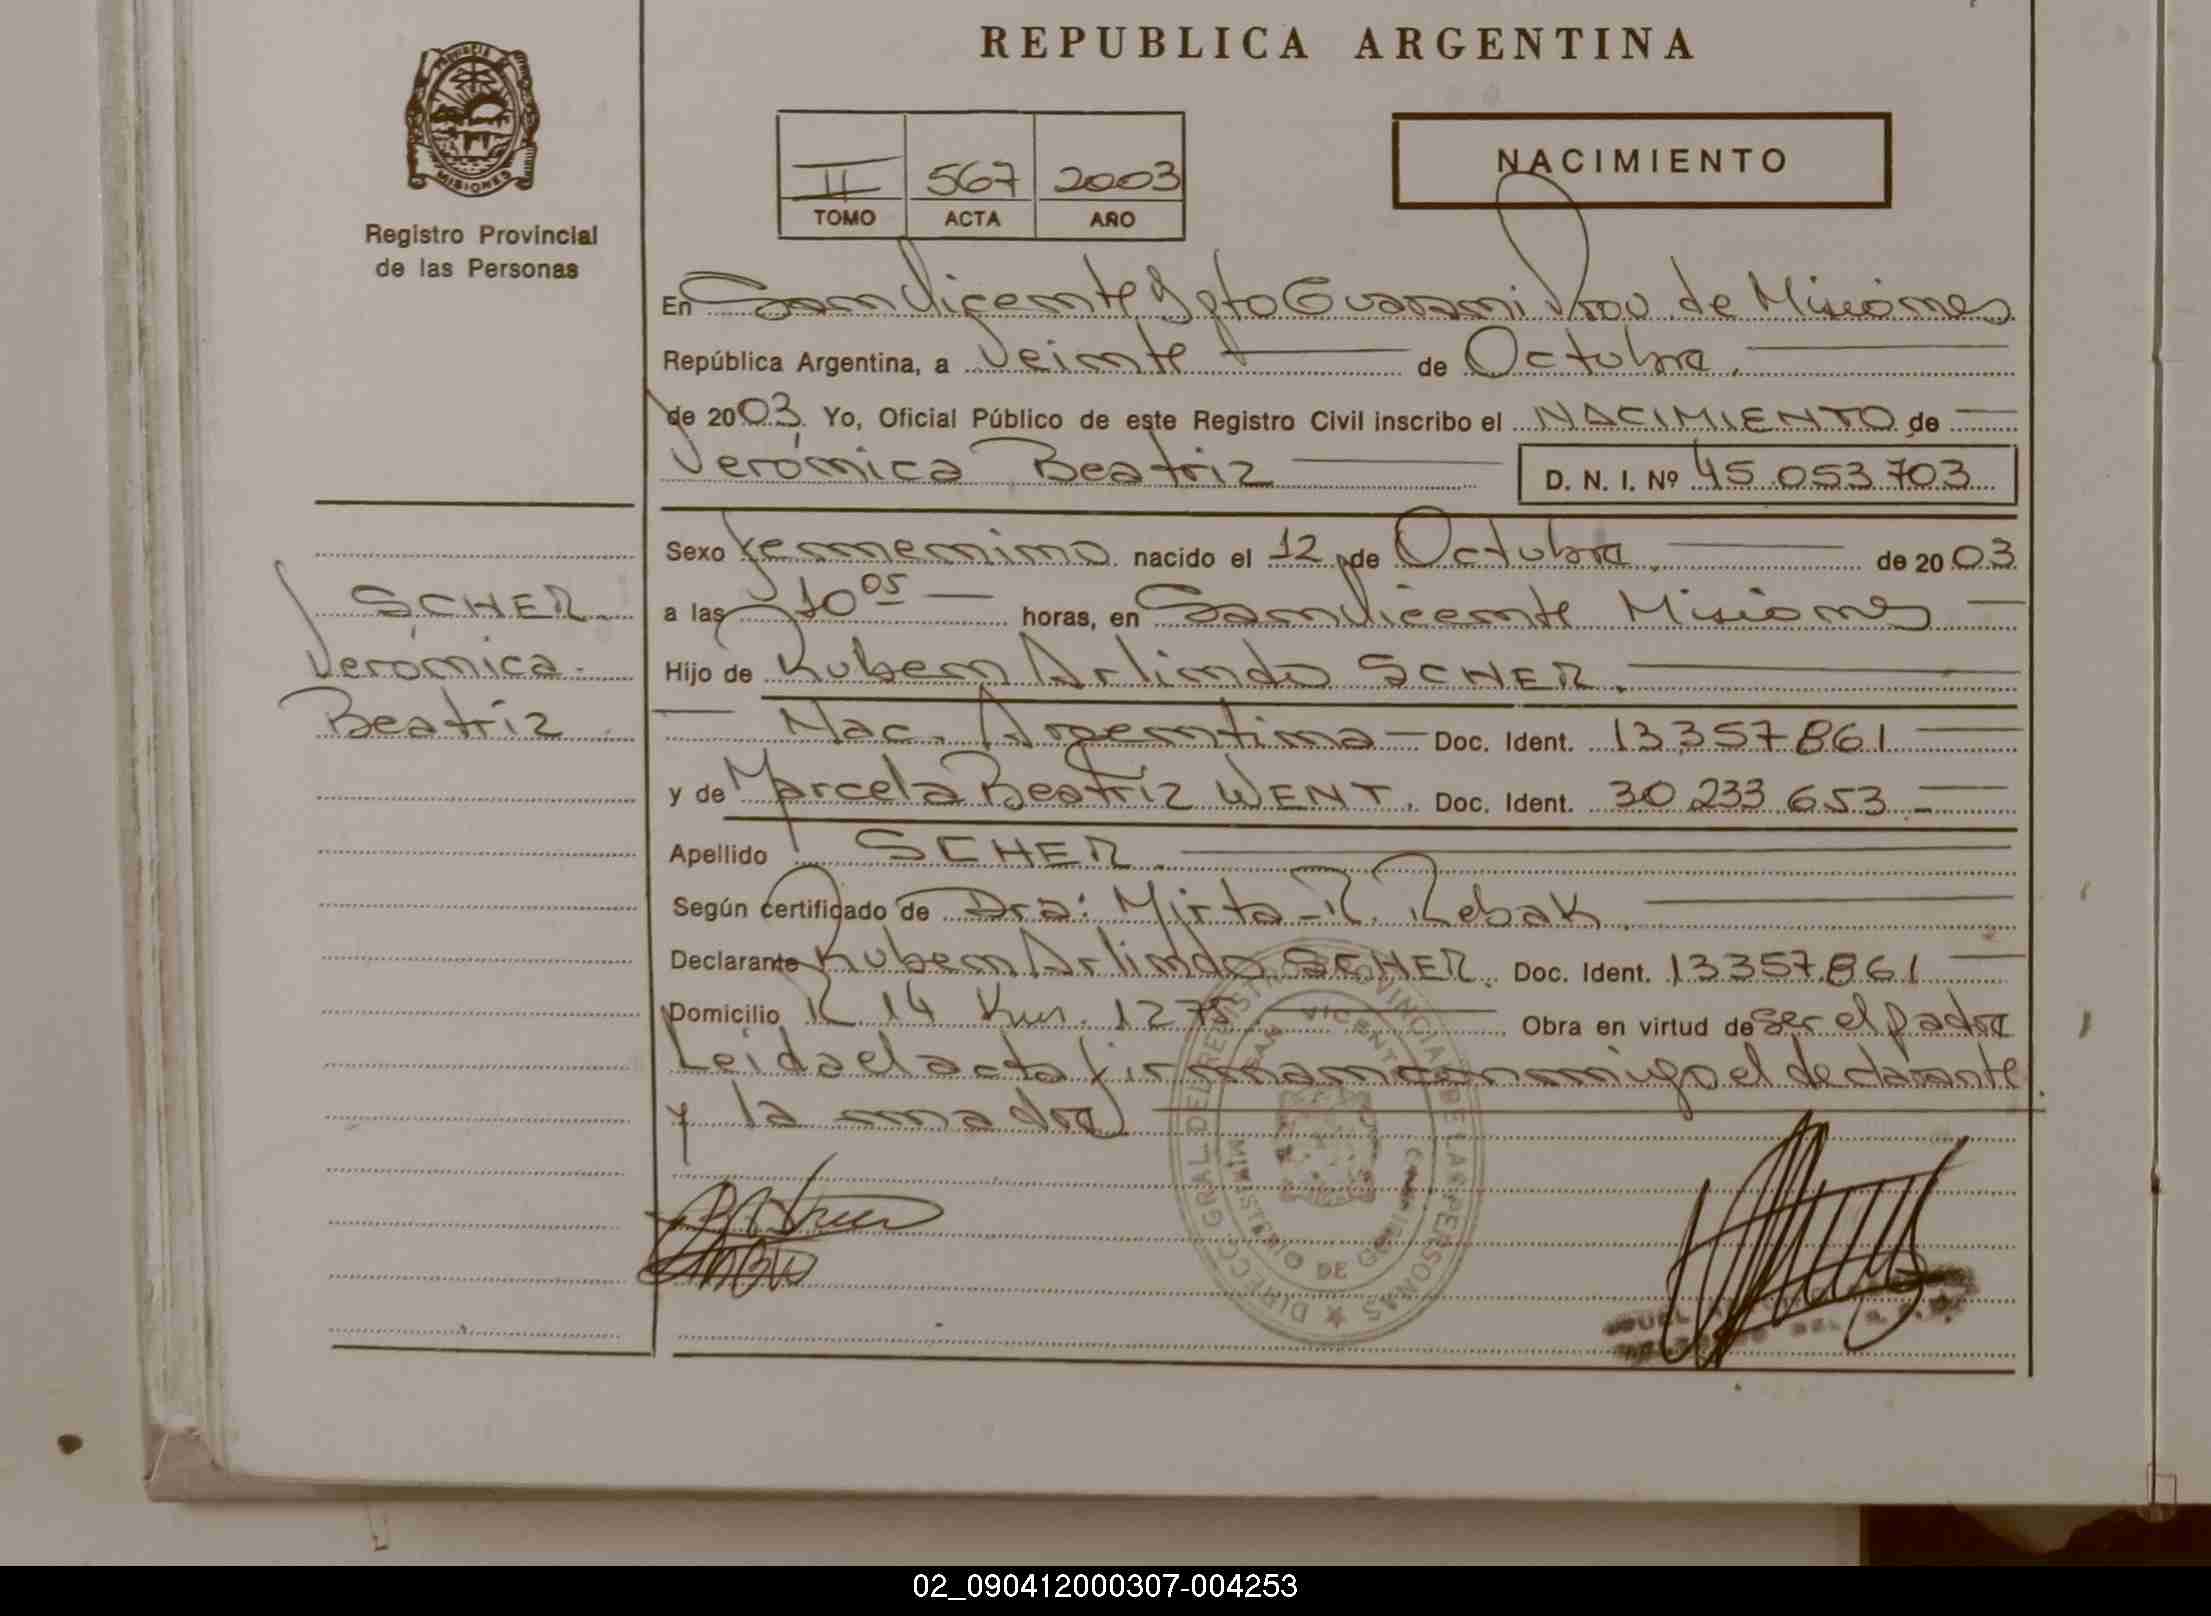 REPUBLICA ARGENTINA
PROVINCIA DE
MISIONES
Registro Provincial
de las Personas
II 567 2003
TOMO ACTA AÑO
NACIMIENTO
En San Vicente Dpto Guaraní Prov. de Misiones
República Argentina, a Veinte de Octubre.
de 2003. Yo, Oficial Público de este Registro Civil inscribo el NACIMIENTO de
Verónica Beatriz D. N. I. Nº 45.053.703
Sexo femenino nacido el 12 de Octubre. de 2003
a las 10 05 horas, en San Vicente Misiones
Hijo de Ruben Arlindo SCHER.
Nac. Argentina Doc. Ident. 13.357.861
y de Marcela Beatriz WENT. Doc. Ident. 30.233.653
Apellido SCHER.
Según certificado de Dra: Mirta R. Rebak
Declarante Ruben Arlindo SCHER. Doc. Ident. 13.357.861
Domicilio R 14 Km. 1275 Obra en virtud de ser el padre
Leida el acta firman conmigo el declarante
y la madre
SCHER
Verónica
Beatriz
DIRECC. GRAL. DEL REGISTRO PROVINCIAL DE LAS PERSONAS
SAN VICENTE
MINISTERIO DE GOBIERNO
02_090412000307-004253